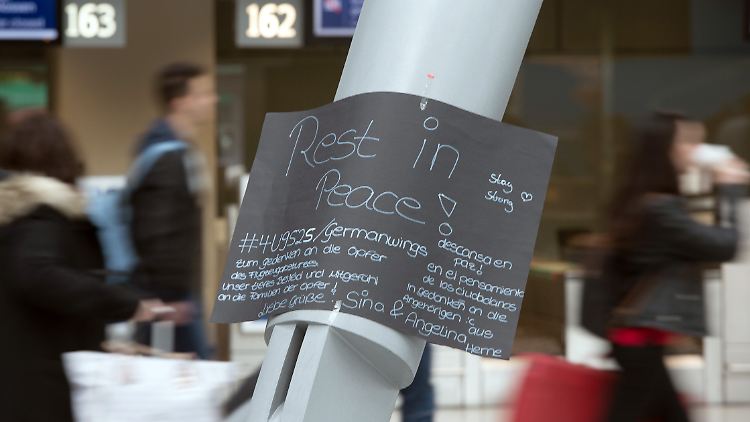 163
162
Rest in
Peace!
Stay
Strong ♡
#4U9525/Germanwings
zum gedenken an die Opfer
des Flugzeugabsturzes
Unser tiefes Beileid und Mitgefühl
an die Familien der Opfer!
Liebe Grüße
descansa en
paz!
en el pensamiento
de los ciudadanos
in Gedanken an die
Angehörigen
Sina
& Angelina aus
Herne